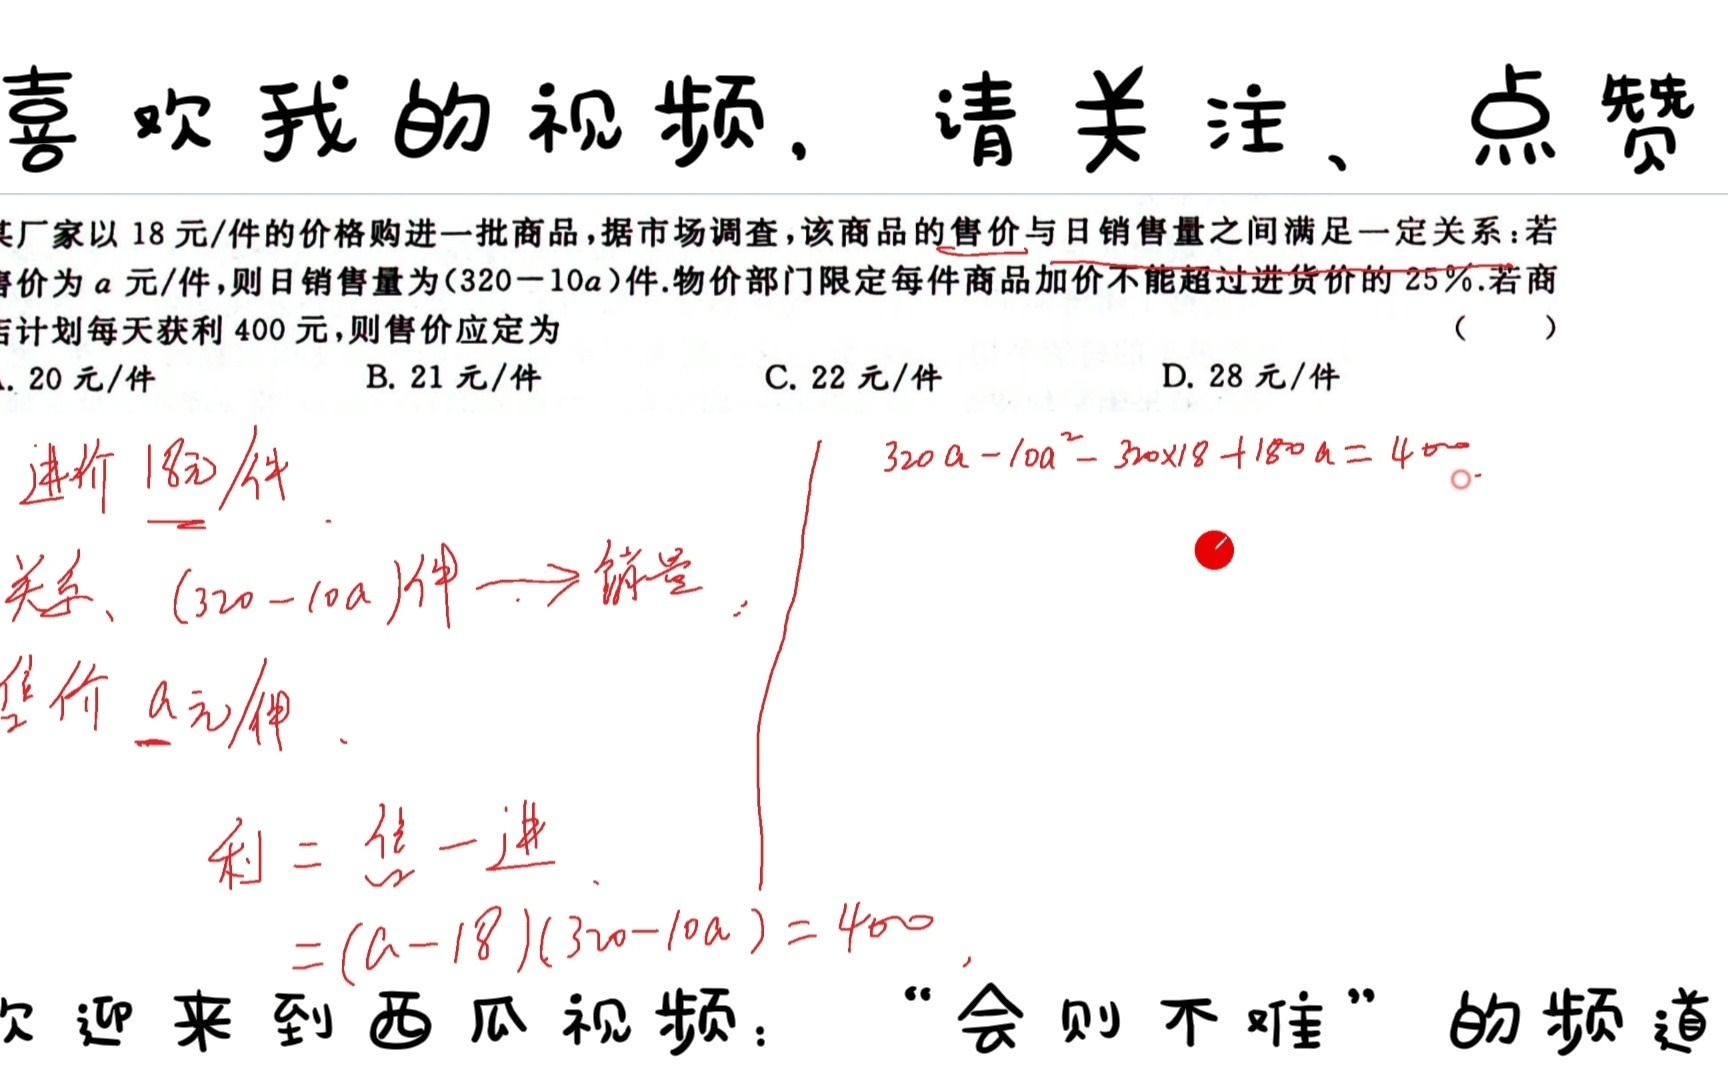 喜欢我的视频，请关注、点赞
厂家以 18 元/件的价格购进一批商品,据市场调查,该商品的售价与日销售量之间满足一定关系:若
价为 a 元/件,则日销售量为(320-10a)件.物价部门限定每件商品加价不能超过进货价的 25%.若商
计划每天获利 400 元,则售价应定为 ( )
. 20 元/件 B. 21 元/件 C. 22 元/件 D. 28 元/件
进价 18元/件.
关系、(320-10a)件 → 销量.
售价 a元/件.
利 = 售 - 进.
=(a-18)(320-10a)=400,
320a-10a²-320×18+180a=400.
迎来到西瓜视频：“会则不难”的频道